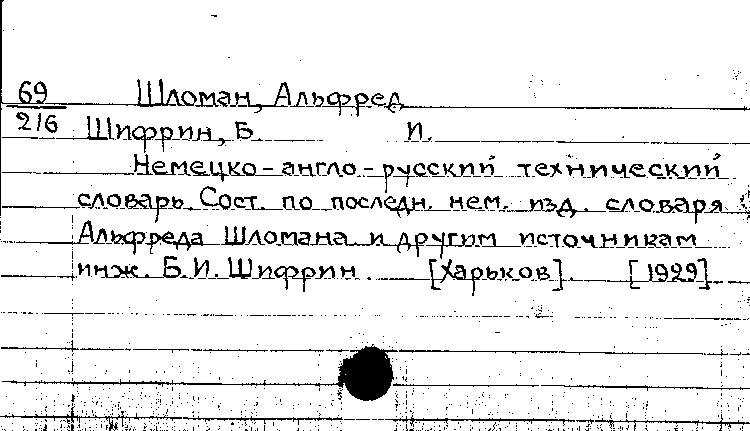 69 Шломан, Альфред
216 Шифрин, Б. И.
Немецко-англо-русский технический
словарь. Сост. по последн. нем. изд. словаря
Альфреда Шломана и другим источникам
инж. Б.И. Шифрин. [Харьков]. [1929]